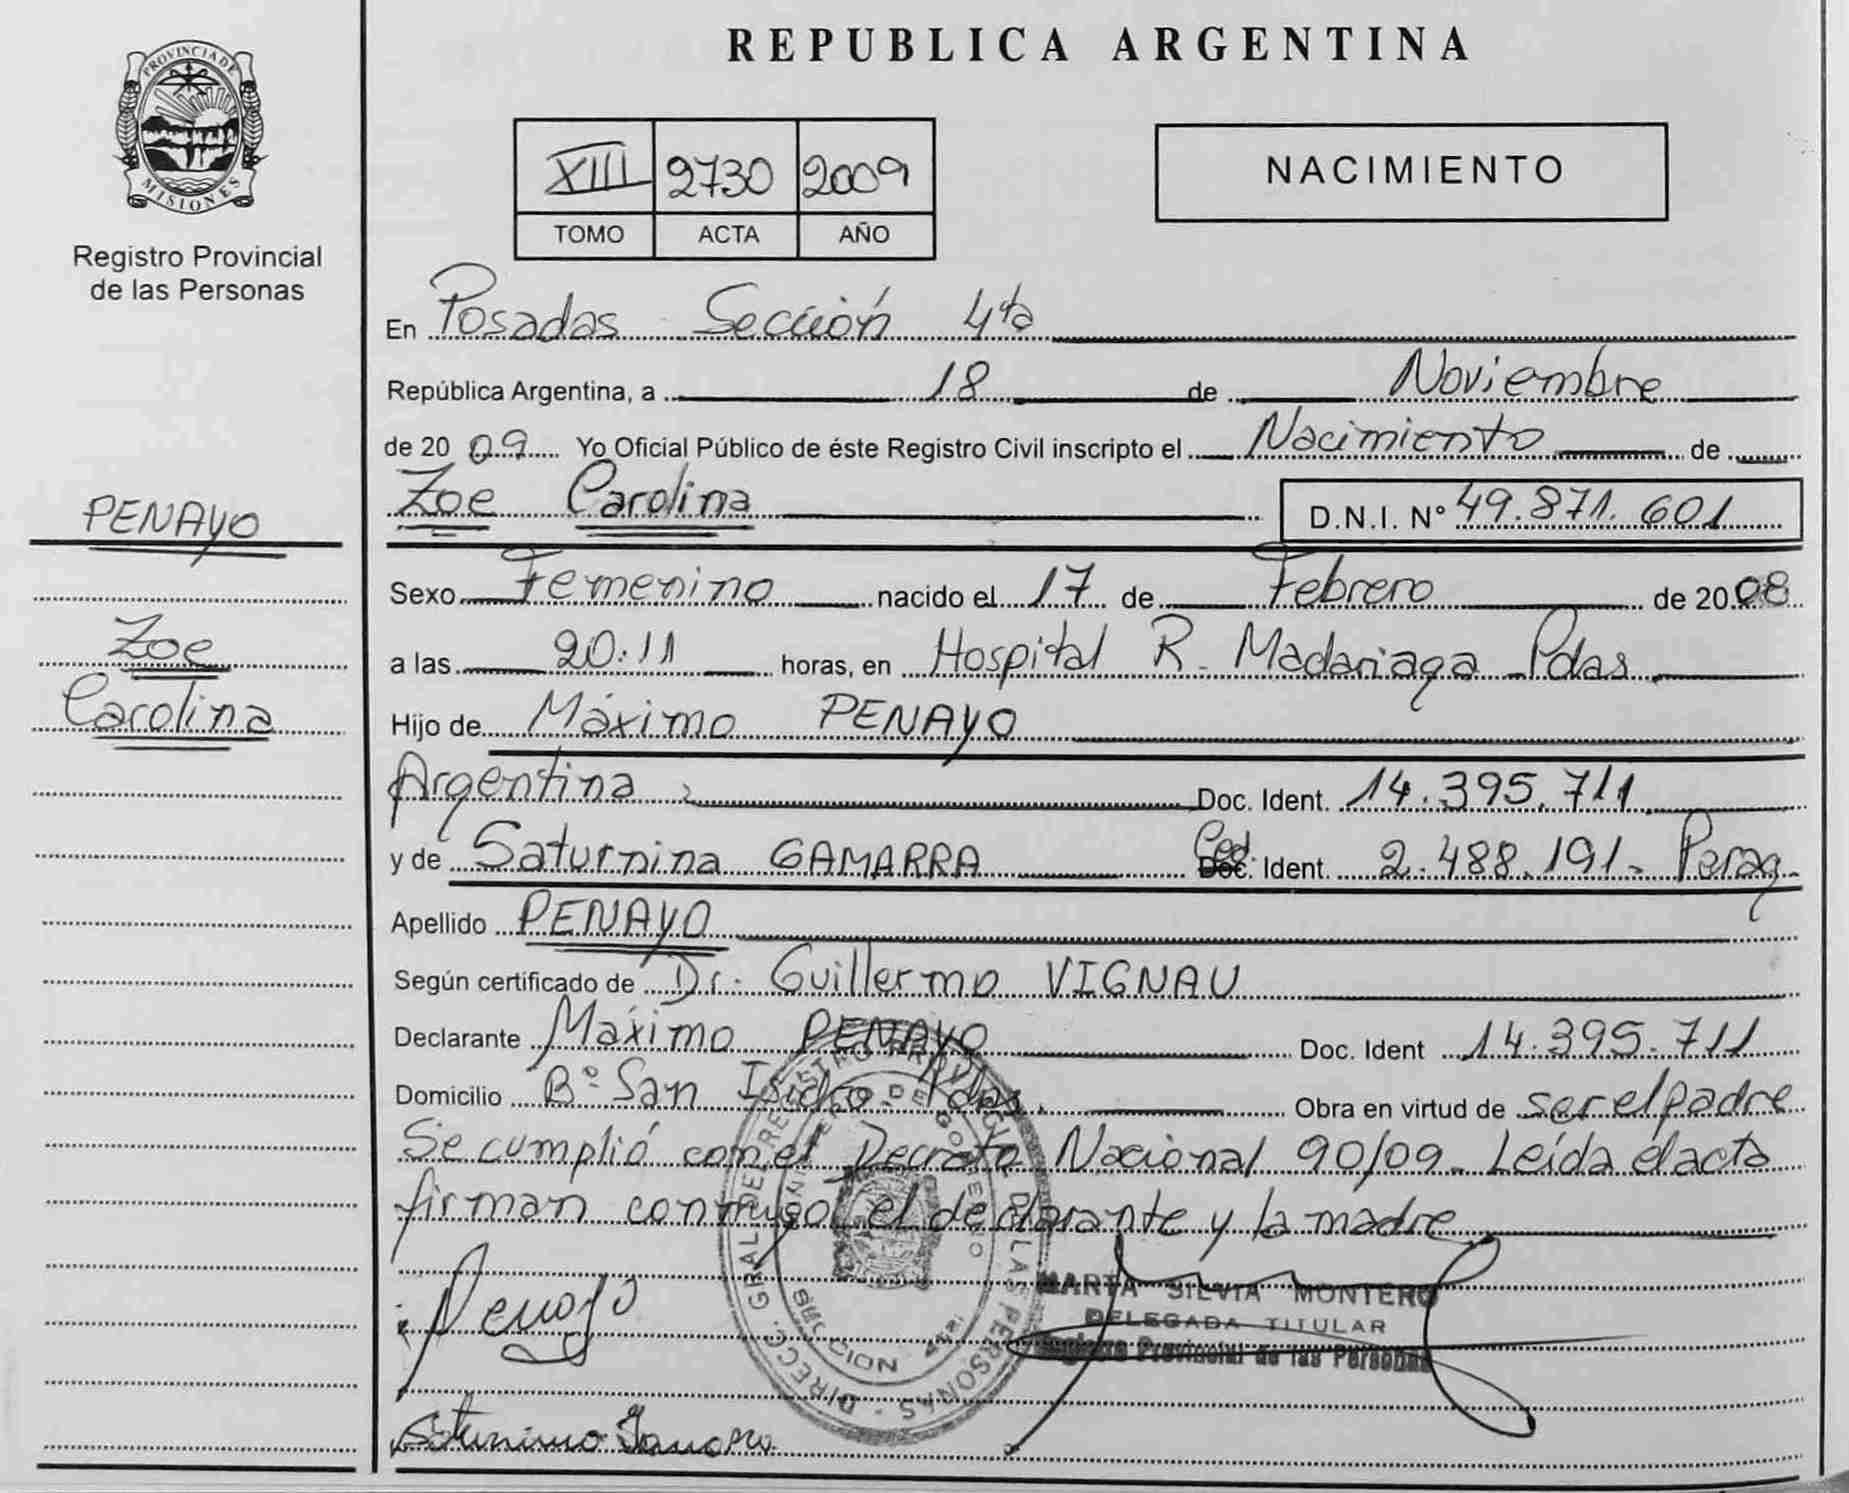 REPUBLICA ARGENTINA
PROVINCIA DE
MISIONES
Registro Provincial
de las Personas
XIII 2730 2009
TOMO ACTA AÑO
NACIMIENTO
En Posadas Sección 4ta
República Argentina, a 18 de Noviembre
de 2009 Yo Oficial Público de éste Registro Civil inscripto el Nacimiento de
Zoe Carolina D.N.I. Nº 49.871.601
PENAYO
Zoe
Carolina
Sexo Femenino nacido el 17 de Febrero de 2008
a las 20:11 horas, en Hospital R. Madariaga Pdas
Hijo de Máximo PENAYO
Argentina Doc. Ident. 14.395.711
y de Saturnina GAMARRA Ced. Doc. Ident. 2.488.191- Parag.
Apellido PENAYO
Según certificado de Dr. Guillermo VIGNAU
Declarante Máximo PENAYO Doc. Ident 14.395.711
Domicilio Bº San Isidro Pdas. Obra en virtud de ser el padre
Se cumplió con el Decreto Nacional 90/09- Leída el acta
firman conmigo el declarante y la madre
Penayo
MARTA SILVIA MONTERO
DELEGADA TITULAR
Registro Provincial de las Personas
DIRECC. GRAL DE REGISTRO PROVINCIAL DE LAS PERSONAS